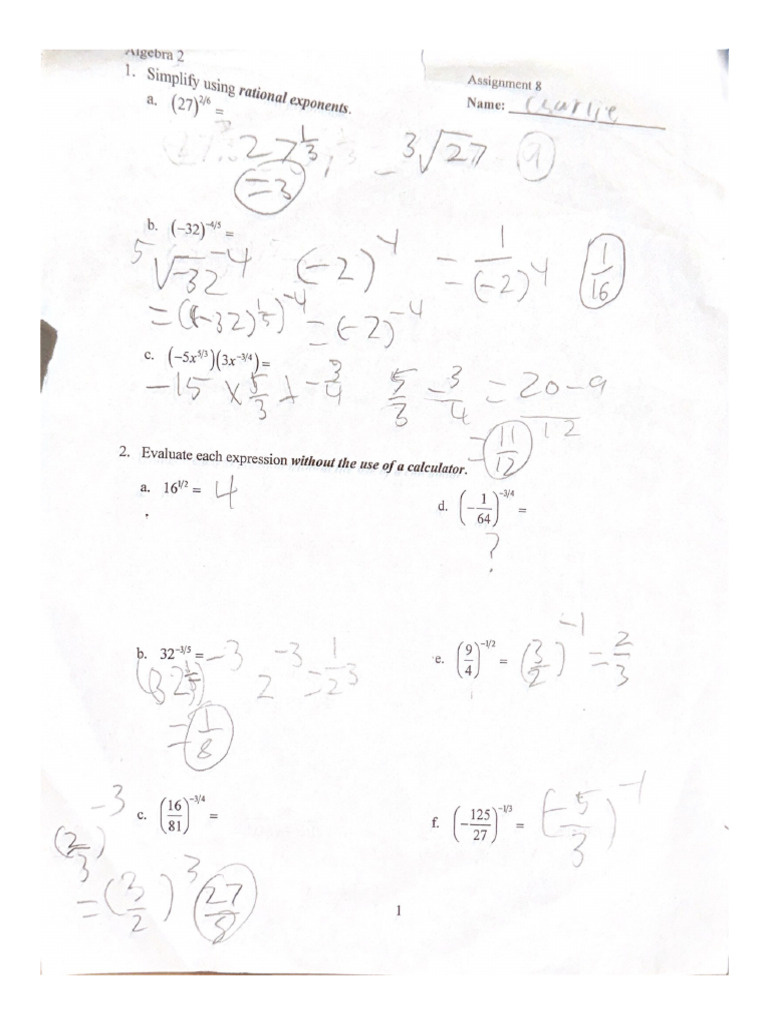 Algebra 2
Assignment 8
Name: Charlie
1. Simplify using rational exponents.
a. (27)^{2/6} =
27^{1/3} = ∛27 (9)
= 3
b. (-32)^{-4/5} =
⁵√-32^{-4} (-2)^4 = 1/(-2)^4 1/16
= ((-32)^{1/5})^{-4} = (-2)^{-4}
c. (-5x^{5/3})(3x^{-3/4}) =
-15 x 5/3 + -3/4 5/3 - 3/4 = 20-9/12
= 11/12
2. Evaluate each expression without the use of a calculator.
a. 16^{1/2} = 4
d. (-1/64)^{-3/4} =
?
b. 32^{-3/5} =
(32^{1/5})^{-3} 2^{-3} = 1/2^3
= 1/8
e. (9/4)^{-1/2} = (3/2)^{-1} = 2/3
c. (16/81)^{-3/4} =
(2/3)^{-3}
= (3/2)^3 27/8
f. (-125/27)^{-1/3} = (-5/3)^{-1}
1